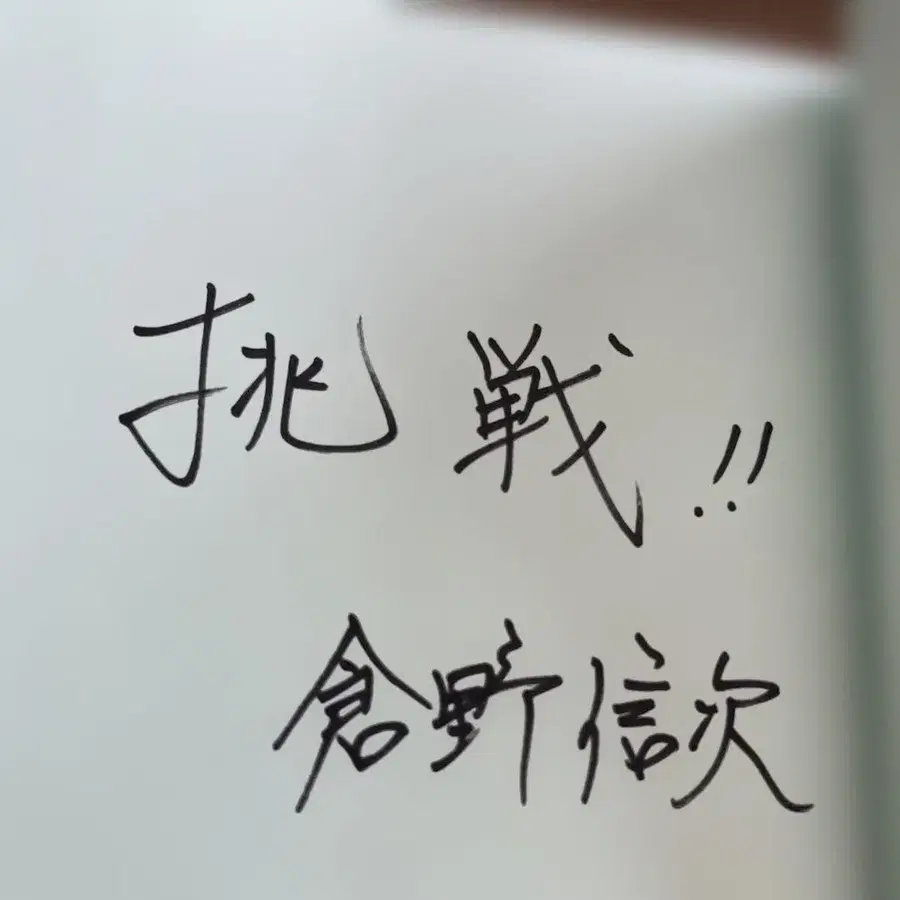 挑戦!!
倉野信次